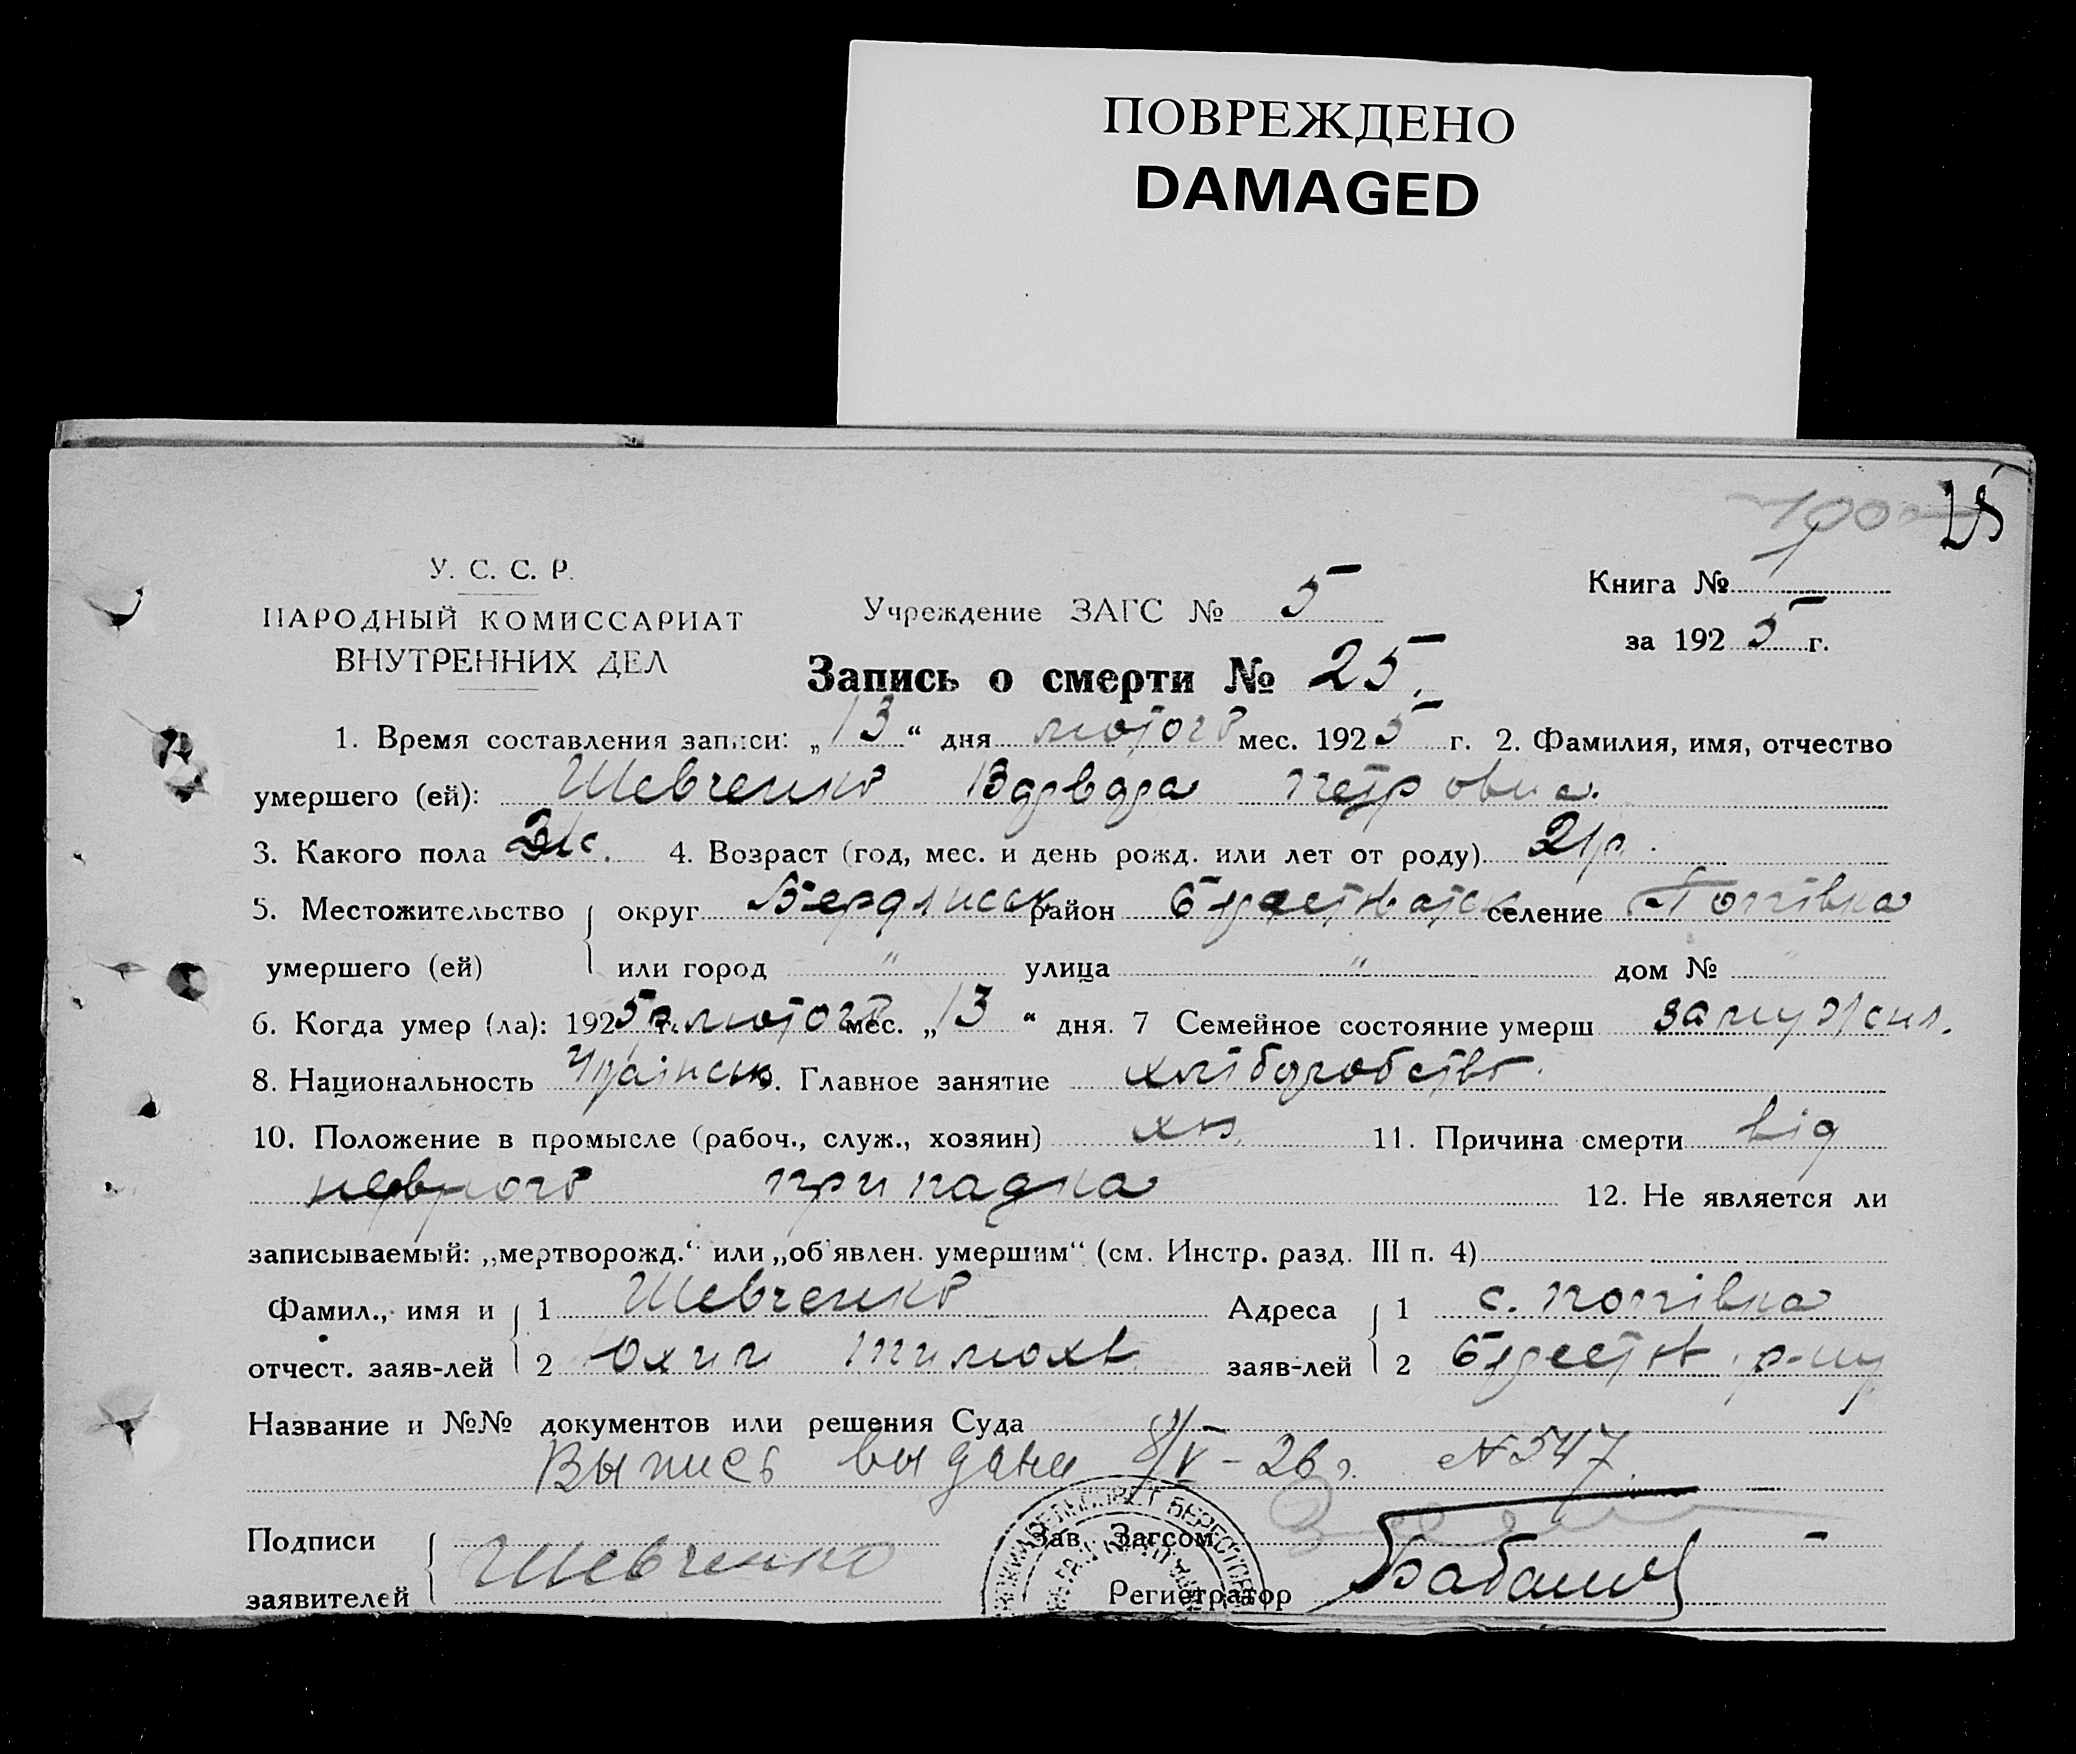 ПОВРЕЖДЕНО
DAMAGED
25
У. С. С. Р.
НАРОДНЫЙ КОМИССАРИАТ
ВНУТРЕННИХ ДЕЛ
Учреждение ЗАГС № 5
Книга №
за 1925 г.
Запись о смерти № 25.
1. Время составления записи: „13“ дня лютого мес. 1925 г. 2. Фамилия, имя, отчество
умершего (ей): Шевченко Варвара Петровна.
3. Какого пола Ж. 4. Возраст (год, мес. и день рожд. или лет от роду) 21 р.
5. Местожительство округ Бердянськ район Берестоватск селение Попівка
умершего (ей) или город " улица " дом № "
6. Когда умер (ла): 1925 г. лютого мес. „13“ дня. 7 Семейное состояние умерш замужня.
8. Национальность Українськ. Главное занятие хліборобство.
10. Положение в промысле (рабоч., служ., хозяин) хаз. 11. Причина смерти від
нервного припадка 12. Не является ли
записываемый: „мертворожд.“ или „об'явлен. умершим“ (см. Инстр. разд. III п. 4)
Фамил., имя и 1 Шевченко Адреса 1 с. Попівка
отчест. заяв-лей 2 Юхим Тимохв заяв-лей 2 Берестов. р-ну
Название и №№ документов или решения Суда
Выпись выдана 8/V-26 г. № 547.
Подписи Шевченко Зав. Загсом
заявителей Регистратор